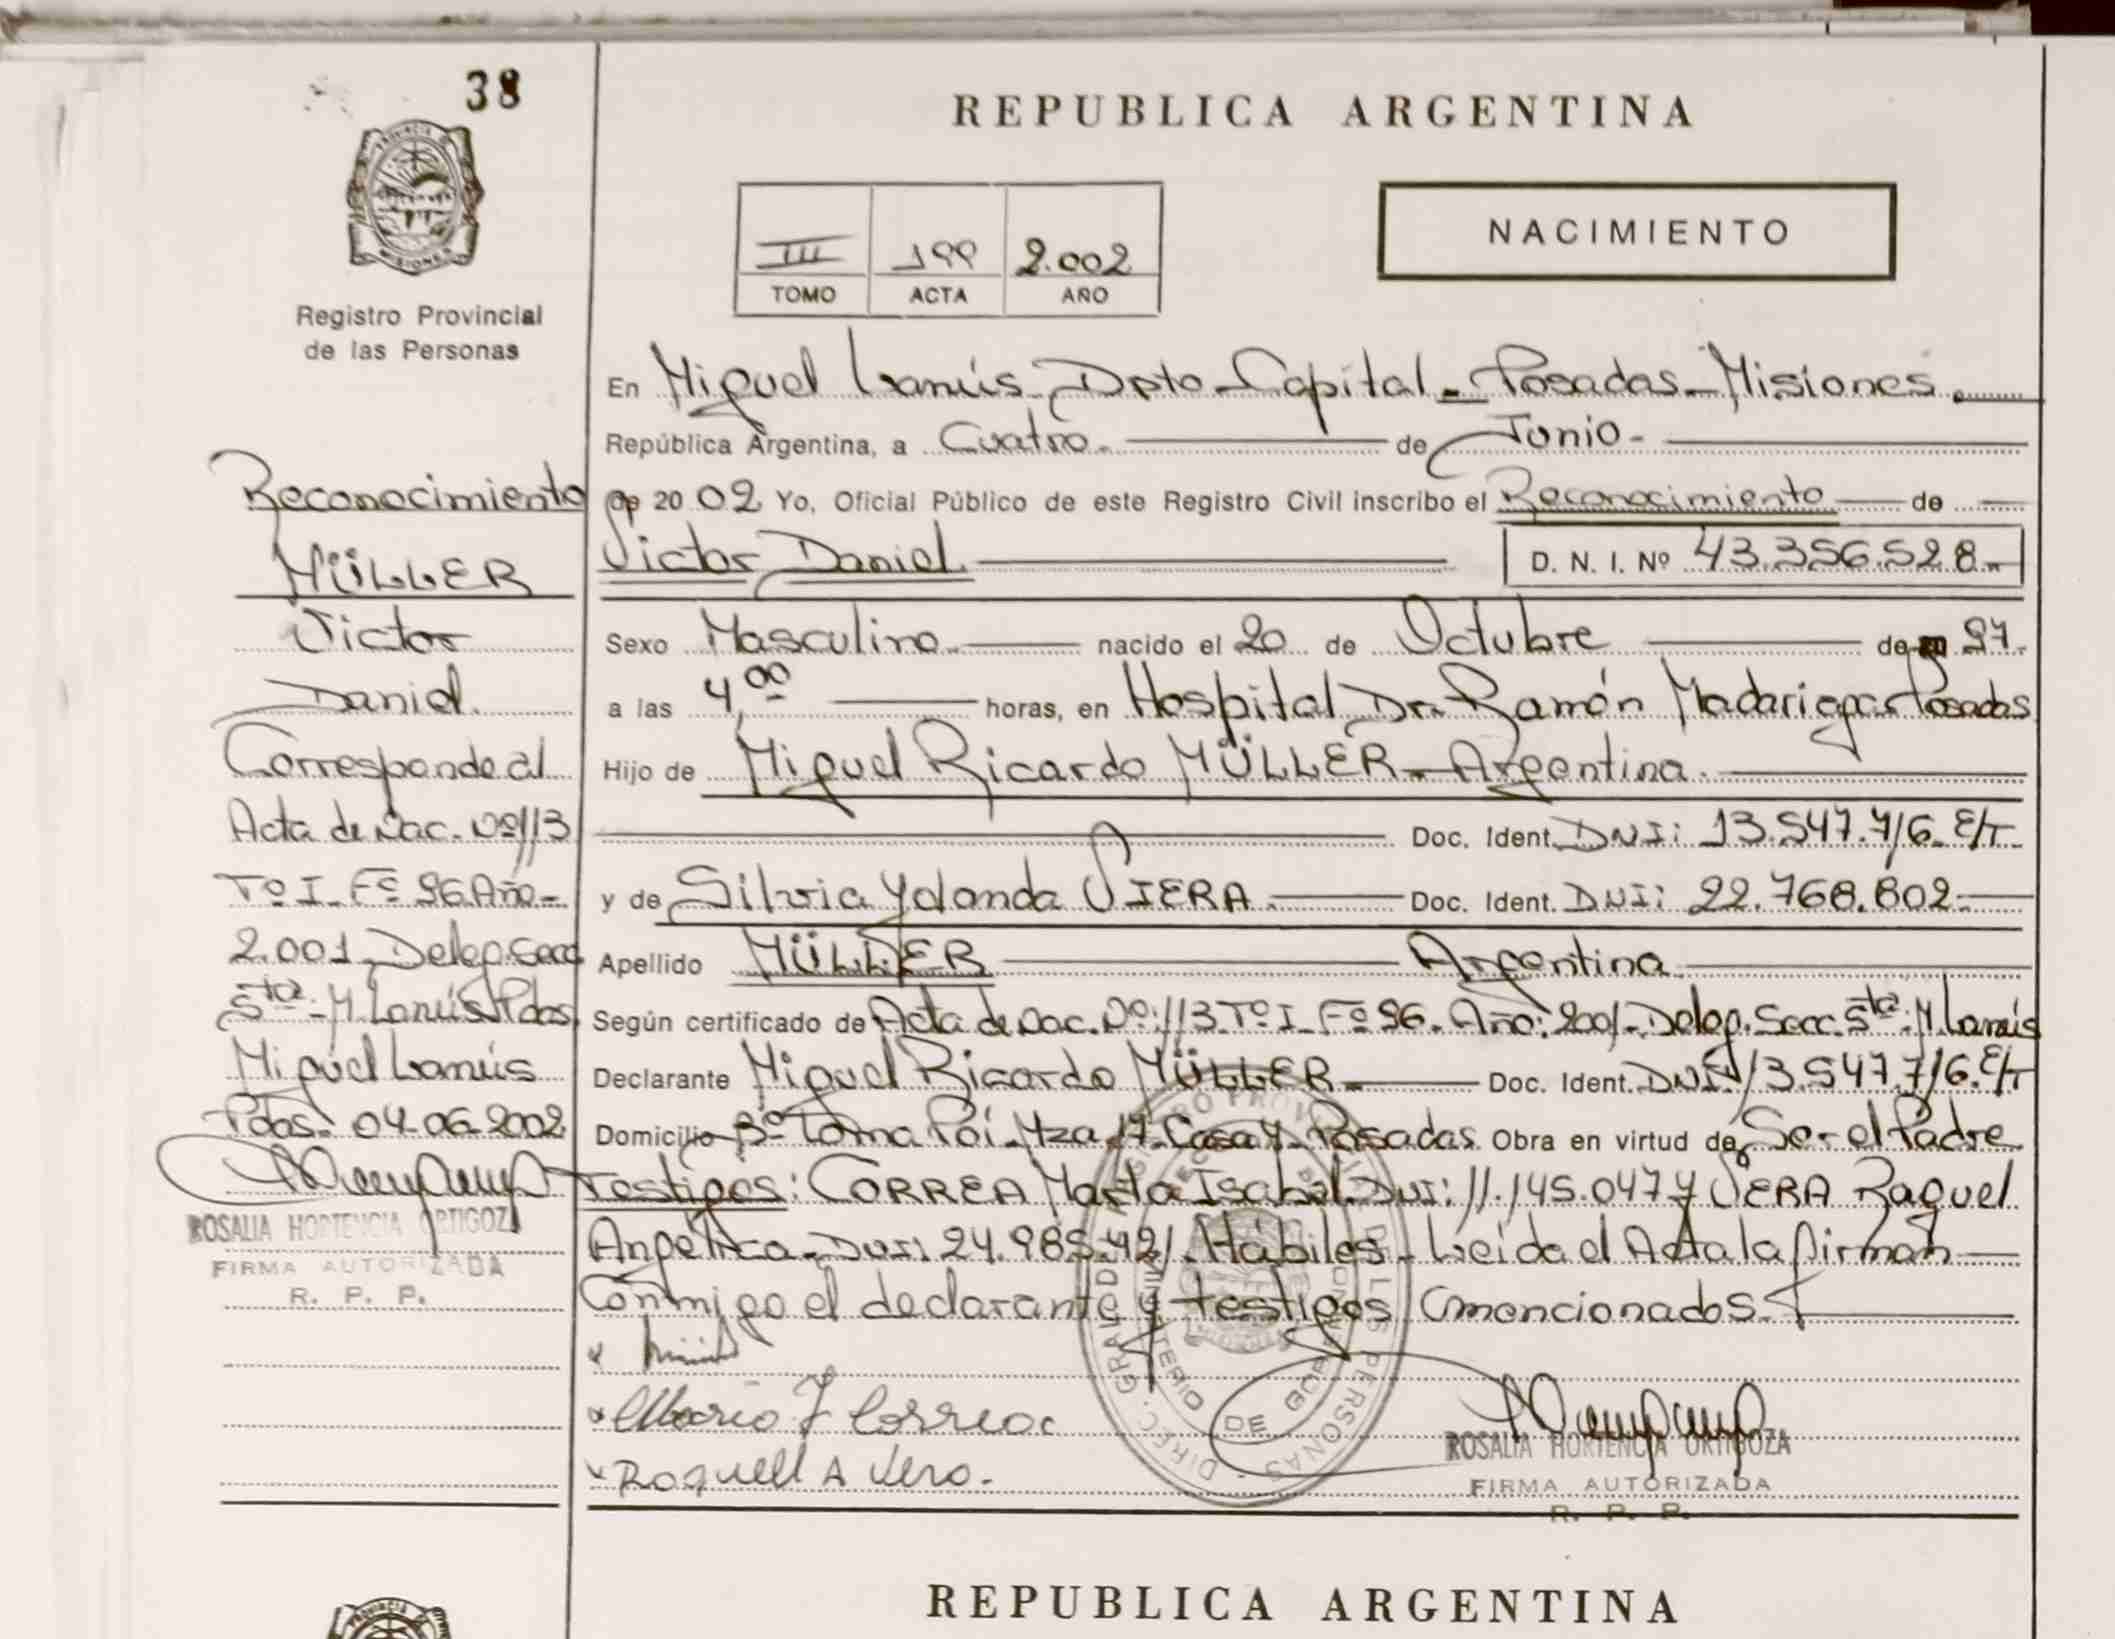 38
REPUBLICA ARGENTINA
NACIMIENTO
III 199 2.002
TOMO ACTA AÑO
PROVINCIA DE MISIONES
Registro Provincial
de las Personas
Reconocimiento
MÜLLER
Victor
Daniel.
Corresponde al
Acta de Nac. Nº 113
Tº I. Fº 96 Año-
2.001. Deleg. Secc
5ta. M. Lanús Pdas,
Miguel Lanús
Pdas. 04.06.2002
ROSALIA HORTENCIA ORTIGOZA
FIRMA AUTORIZADA
R. P. P.
En Miguel Lanús. Dpto Capital - Posadas - Misiones.
República Argentina, a Cuatro. de Junio -
de 20 02 Yo, Oficial Público de este Registro Civil inscribo el Reconocimiento de
Victor Daniel. D. N. I. Nº 43.356.528.-
Sexo Masculino nacido el 20 de Octubre de 97.
a las 4,00 horas, en Hospital Dr. Ramón Madariaga Posadas
Hijo de Miguel Ricardo MÜLLER - Argentina.
Doc. Ident. DNI: 13.547.716. E/T
y de Silvia Yolanda VIERA Doc. Ident. DNI: 22.768.802.-
Apellido MÜLLER Argentina
Según certificado de Acta de Nac. Nº: 113 Tº I Fº 96. Año: 2001. Deleg. Secc. 5ta. M. Lanús
Declarante Miguel Ricardo MÜLLER - Doc. Ident. DNI: 13.547.716. E/T
Domicilio Bº Toma Poi. Mza 17. Casa 4. Posadas. Obra en virtud de Ser el Padre
Testigos: CORREA Marta Isabel DNI: 11.145.047 y VERA Raquel
Angélica. DNI: 24.985.421. Hábiles - Leída el Acta la firman
Conmigo el declarante y testigos mencionados.
Correa
Raquel A Vera.
DIREC. GRAL. DEL REGISTRO PROVINCIAL DE LAS PERSONAS
MINISTERIO DE GOBIERNO
ROSALIA HORTENCIA ORTIGOZA
FIRMA AUTORIZADA
R. P. P.
REPUBLICA ARGENTINA
PROVINCIA